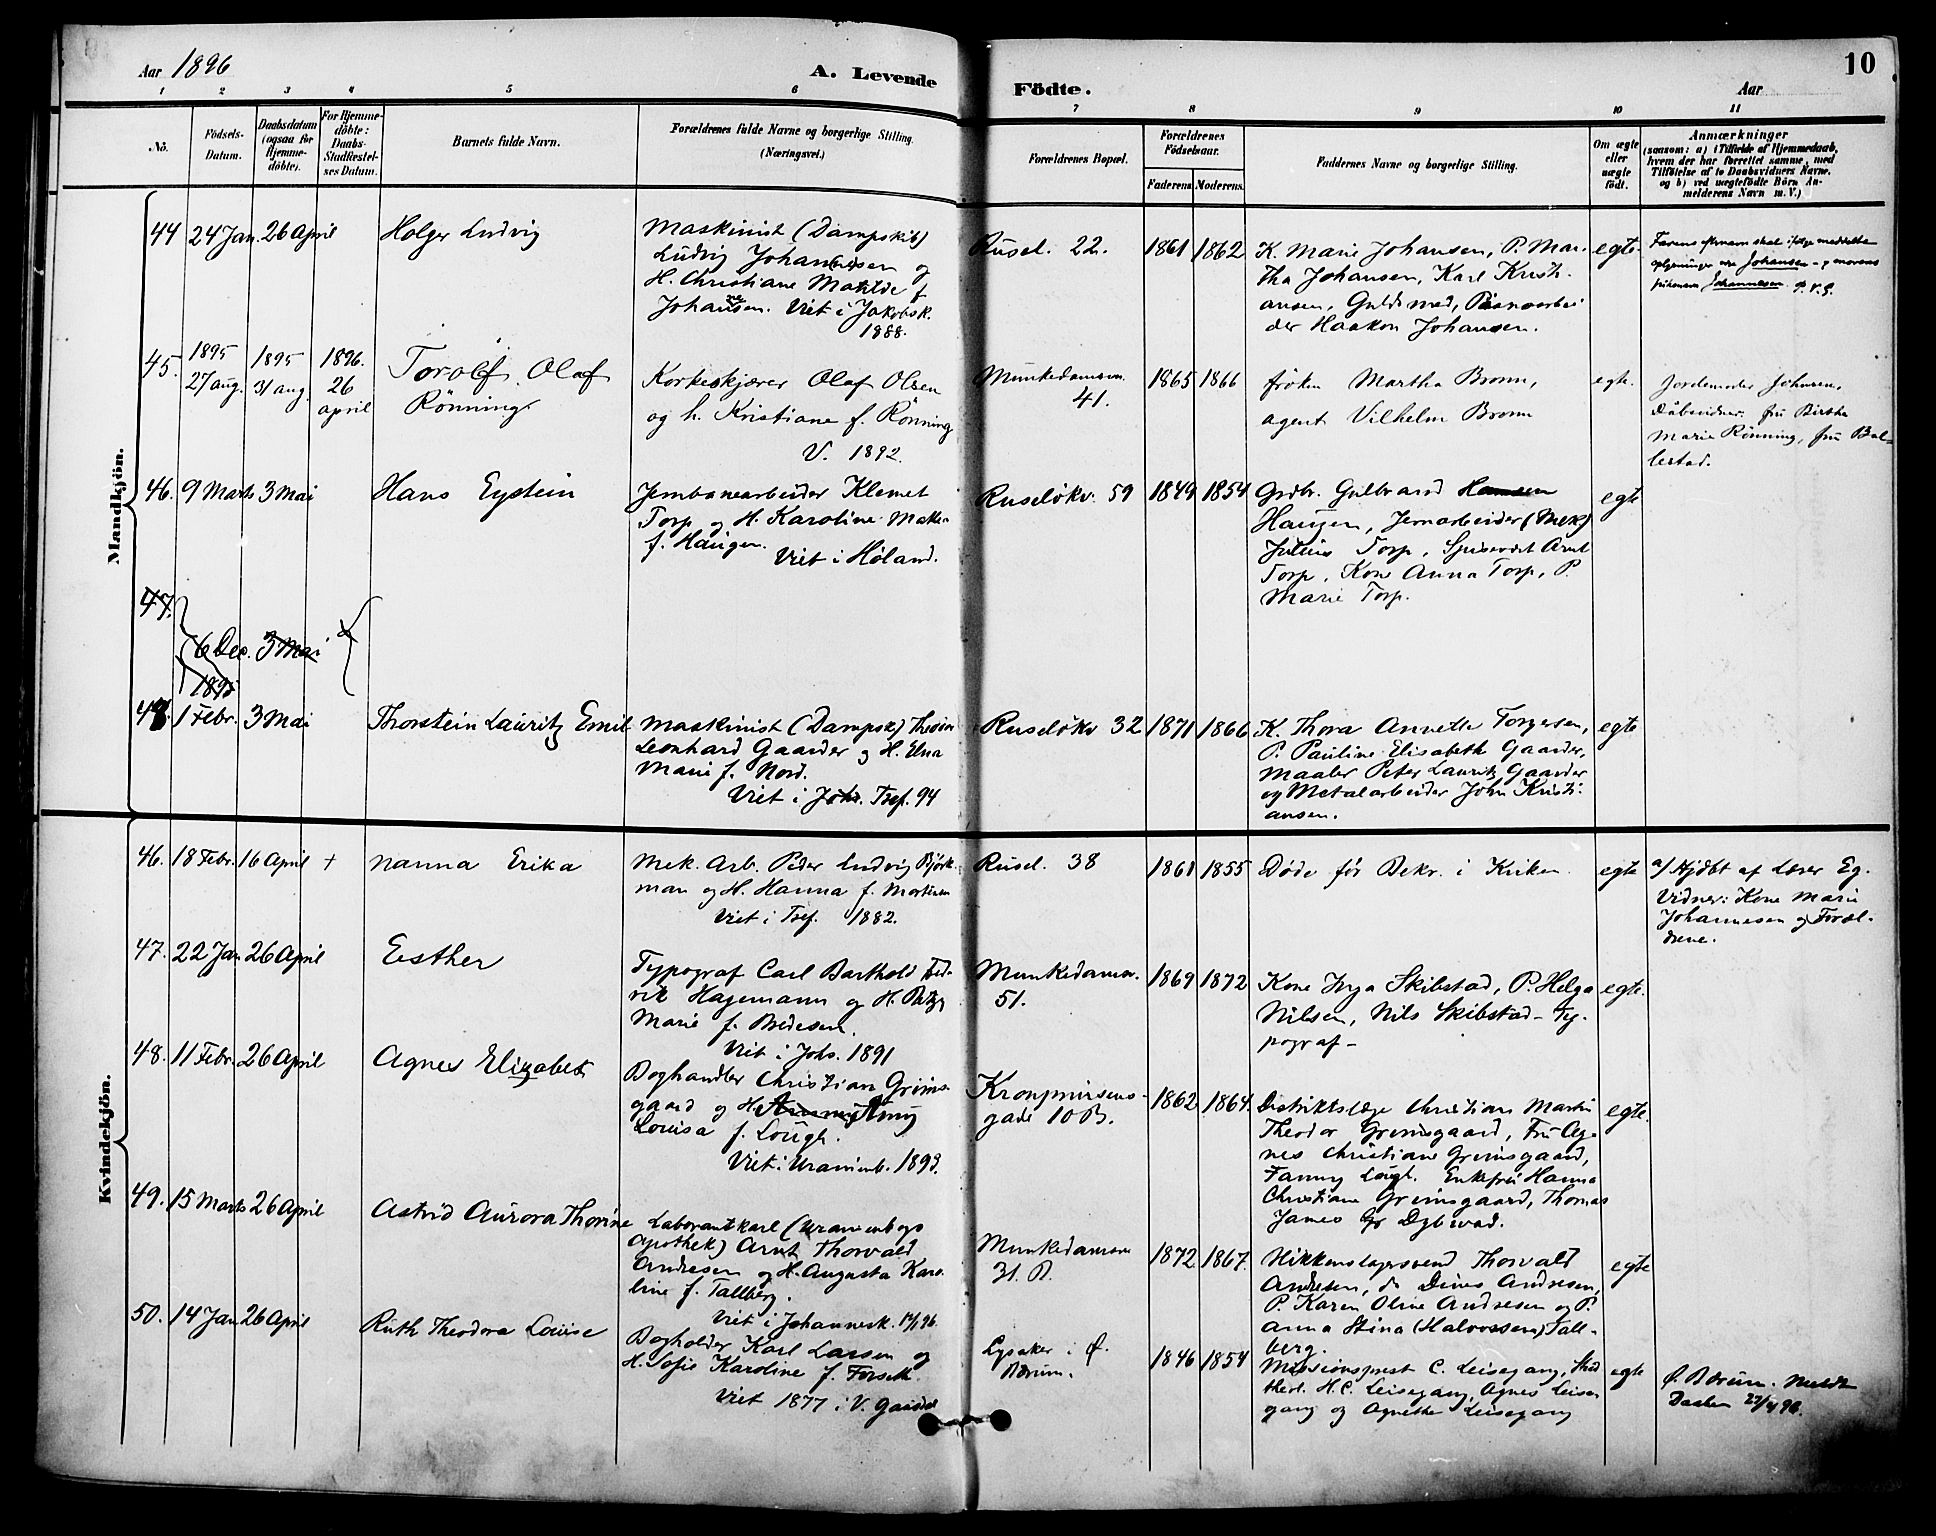 Aar 1896
A. Levende
Fødte.
Aar
10
1 2 3 4 5 6 7 8 9 10 11
No.
Fødsels-
Datum.
Daabsdatum
(ogsaa for
Hjemme-
døbte).
For Hjemme-
døbte:
Daabs-
Stadfæstel-
ses Datum.
Barnets fulde Navn.
Forældrenes fulde Navne og borgerlige Stilling.
(Næringsvei.)
Forældrenes Bopæl.
Forældrenes
Fødselsaar.
Faderens.
Moderens.
Faddernes Navne og borgerlige Stilling.
Om ægte
eller
uægte
født.
Anmærkninger
(saasom: a) i Tilfælde af Hjemmedaab,
hvem der har forrettet samme, med
Tilføielse af to Daabsvidners Navne,
og b) ved uægtefødte Børn An-
melderens Navn m.V.)
Mandkjön.
44 24 Jan. 26 April
Holger Ludvig
Maskinist (Dampskib)
Ludvig Johannesen og
H. Christiane Matilde f
Johansen. Viet i Jakobsk.
1888.
Rusel. 22.
1861 1862
K. Marie Johansen, P. Mar-
tha Johansen, Karl Kristi-
ansen, Guldsmed, Pianoarbei
der Haakon Johansen.
egte.
Farens efternavn skal ifølge meddelte
oplysninger være Johansen - og morens
pikenavn Johannesen.
45. 1895 27 aug. 1895 31 aug. 1896. 26 april
Torolf Olaf
Rönning.
Korkeskjærer Olaf Olsen
og h. Kristiane f. Rönning
V. 1892.
Munkedamsvn.
41.
1865 1866
frøken Martha Bromn,
agent Vilhelm Bromn
egte.
Jordemoder Johnsen.
Dåbsvidner: fru Birthe
Marie Rönning, fru Bal-
lestad.
46. 9 Marts 3 Mai
Hans Eystein
Jernbanearbeider Klemet
Torp og H. Karoline
f. Haugen.
Viet i Høland.
Ruseløkv. 59
1849 1854
Grdbr. Gulbrand Hansen
Haugen, Jernarbeider (Mek)
Julius Torp, Arnt
Torp, Kone Anna Torp, P.
Marie Torp.
egte
47.
6 Dec. 3 Mai
1895
47. 1 Febr. 3 Mai
Thorstein Lauritz Emil
Maskinist (Dampsk)
Leonhard Gaarder og H. Elna
Marie f. Nord.
Viet i Joh. Tref. 94
Ruseløkv 32
1871 1866
K. Thora Annette Torgersen,
P. Pauline Elisabeth Gaarder,
Maaler Peter Lauritz Gaarder
og Metalarbeider John Kristi-
ansen.
egte
Kvindekjön.
46. 18 Febr. 16 April +
Nanna Erika
Mek. Arb. Peder Ludvig Bjørk-
man og H. Hanna f. Martinsen
Viet i Tref. 1882.
Rusel. 38
1861 1855
Døde før Bekr. i Kirken.
egte
a/ Hjdbt af Lærer Eg.
Vidner: Kone Marie
Johannesen og Foræl-
drene.
47. 22 Jan 26 April
Esther
Typograf Carl Barthold Fred-
rik Hagemann og H. Betzy
Marie f. Bredesen.
Viet i Johs. 1891
Munkedamsv.
51.
1869 1872
Kone Inga Skibstad, P. Helga
Nilsen, Nils Skibstad - Ty-
pograf -
egte.
48. 11 Febr. 26 April
Agnes Elizabet
Boghandler Christian Grims-
gaard og H. Amy
Louisa f. Lough.
Viet i Uranienb. 1893.
Kronprinsens-
gade 10 B.
1862 1864.
Distriktslæge Christian Martin
Theodor Grimsgaard, Fru Ag-
nes Christiane Grimsgaard,
Fanny Lough. Enkefru Hanna
Christiane Grimsgaard, Thomas
James Dybwad.
egte.
49. 15 Marts 26 April
Astrid Aurora Thorine
Laborantkarl (Uranienborgs
Apothek) Arnt Thorvald
Andresen og H. Augusta Karo-
line f. Tallberg.
Viet i Johannesk.
Munkedamsvn
31. B.
1872 1867.
Blikkenslagersvend Thorvald
Andresen, do Dines Andresen,
P. Karen Oline Andresen og P.
Anna Stina (Halvorsen) Tall-
berg.
egte
50. 14 Jan 26 April
Ruth Theodora Louise
Bogholder Karl Larsen og
H. Sofie Karoline f. Forseth.
Viet 1877 i V. Gausdal
Lysaker i Ø.
Bærum.
1846 1854
Missionsprest C. Leisegang, Stud
theol. H. C. Leisegang, Agnes Leise-
gang og Agnethe Leisegang
egte
Ø. Bærum. Meldt
Daaben 27/4 96.